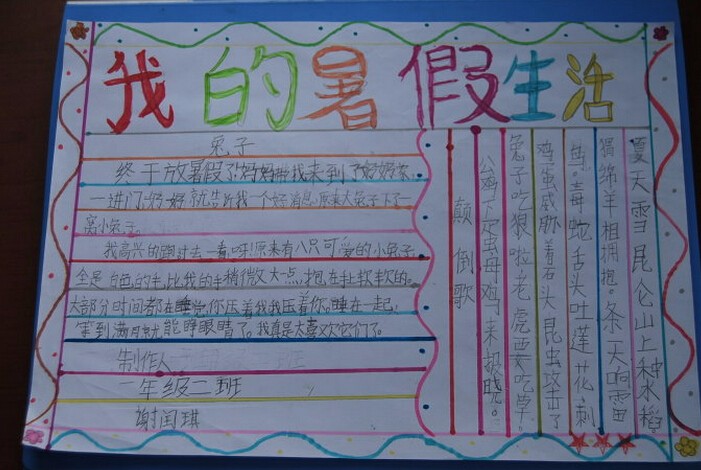 我的暑假生活
兔子
终于放暑假了!妈妈带我来到了奶奶家,
一进门奶奶就告诉我一个好消息,原来大兔子下了一
窝小兔子。
我高兴的跑过去一看,呀!原来有八只可爱的小兔子,
全是白色的毛,比我的手稍微大点,抱在肚软软的。
大部分时间都在睡觉,你压着我我压着你。睡在一起,
等到满月就能睁眼睛了。我真是太喜欢它们了。
制作人 班
一年级二班
谢闰琪
颠倒歌
公鸡下蛋母鸡来报晓。
兔子吃狼啦老虎要吃草。
鸡蛋威胁着石头昆虫攻击了
蛛。毒蛇舌头吐莲花刺
猬绵羊相拥抱。冬天响雷
夏天雪昆仑山上种水稻